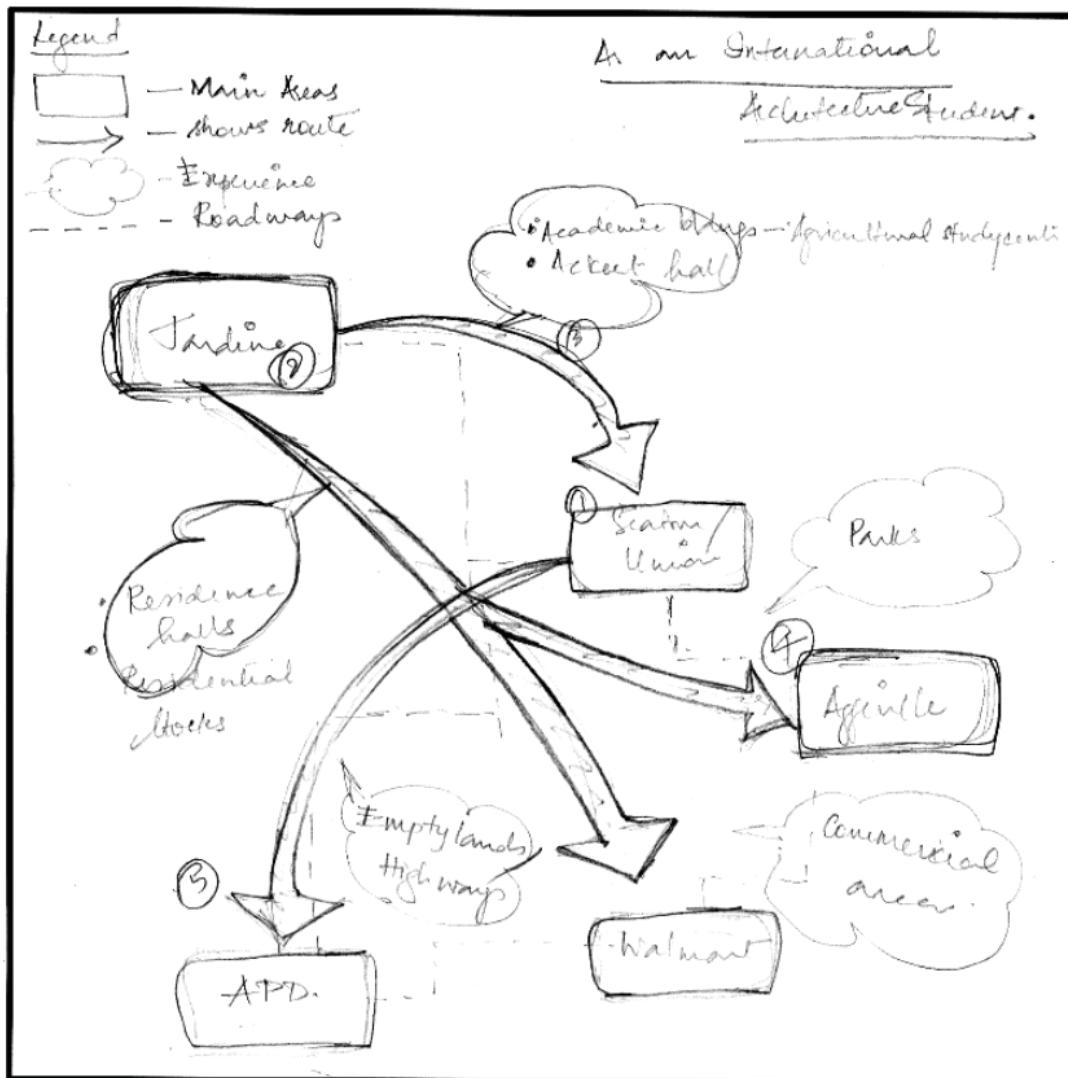 Legend
— Main Areas
— shows route
- Experience
- Roadways
As an International
Architecture Student.
• Academic bldngs — Agricultural study
• Ackert hall
Jardine
2
3
1
Seaton/
Union
Parks
• Residence
halls
• Residential
blocks
4
Aggiville
Empty lands
Highways
Commercial
areas.
5
Walmart
APD.